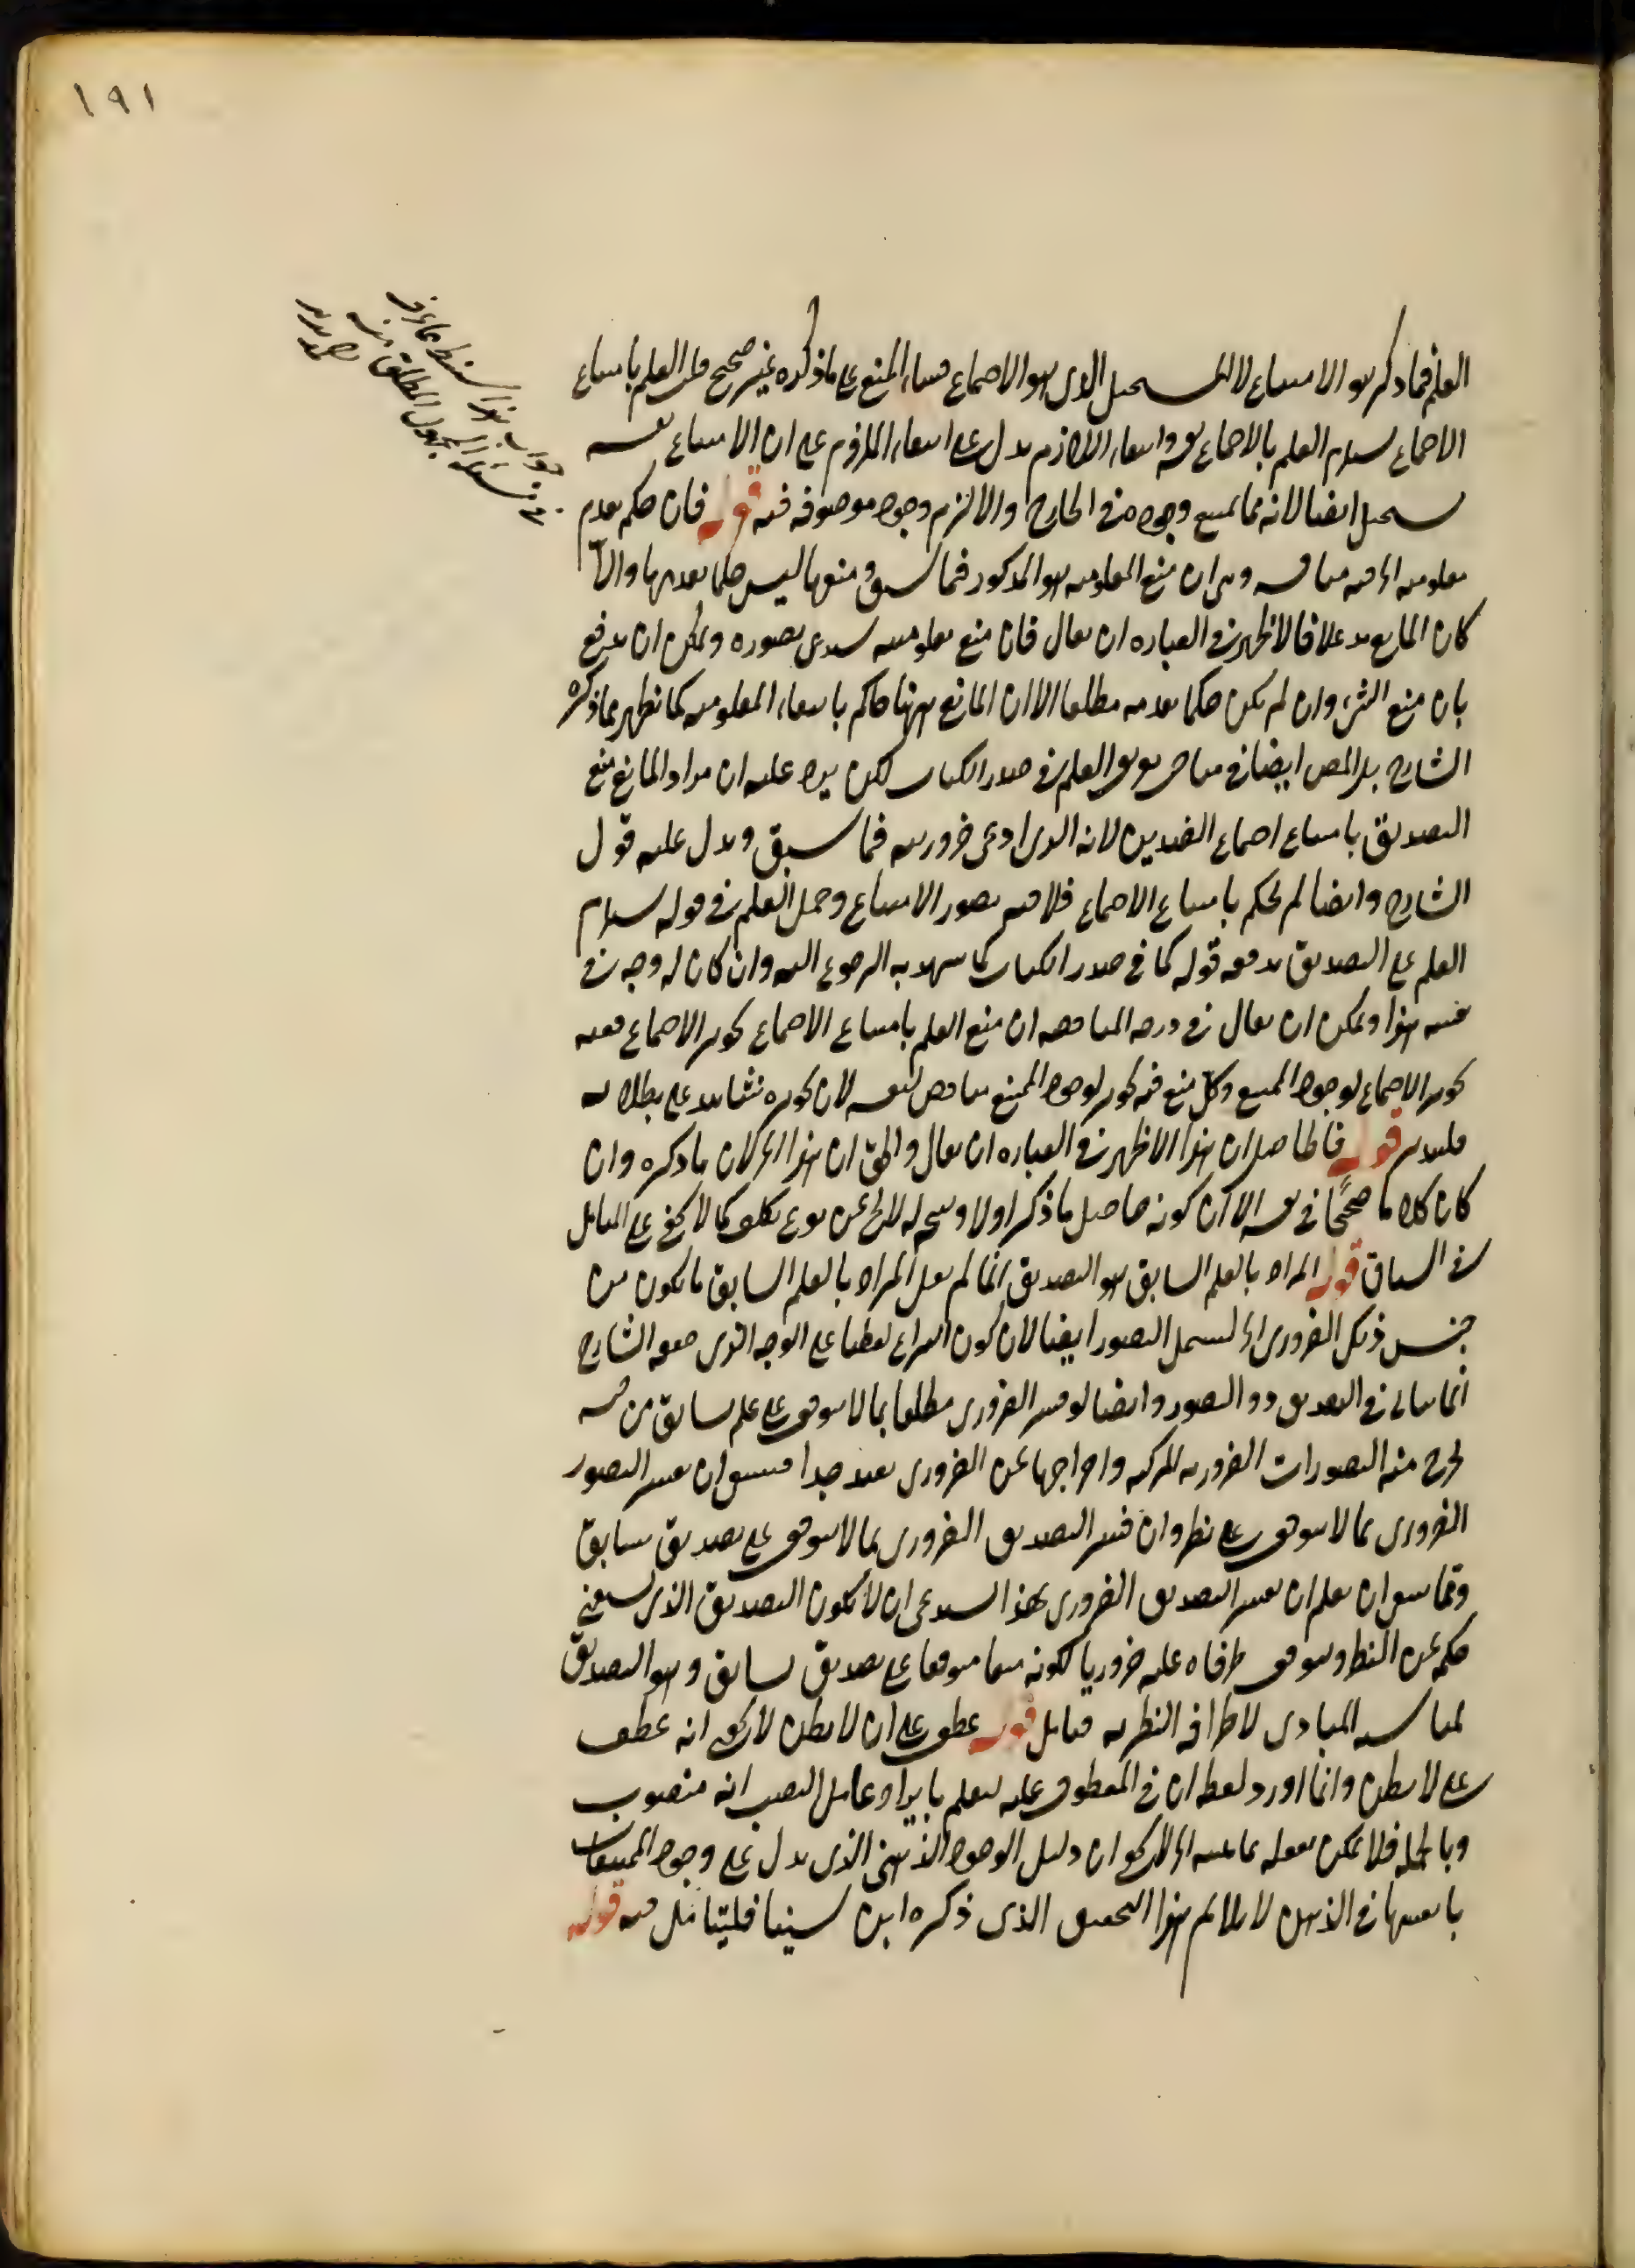 ١٩١
العلم فما ذكر هو الامتناع لا المستحيل الذى هو الاجتماع فبناء المنع على ما ذكره غير صحيح قلت العلم بامتناع
الاجتماع يستلزم العلم بالاجتماع نفسه وانتفاء اللازم يدل على انتفاء الملزوم على ان الامتناع نفسه
مستحيل ايضا لانه مما يمتنع وجوده فى الخارج والا لزم وجود موصوفه فيه قوله فان حكم بعدم
معلوميته الخ فيه مناقشة وهى ان منع المعلومية هو المذكور فيما سبق ومنعها ليس حكما بعدمها والا
كان المانع مدعيا فالاظهر فى العبارة ان يقال فان منع معلوميته يستدعى تصوره ويمكن ان يدفع
بان منع الشئ وان لم يكن حكما بعدمه مطلقا الا ان المانع ههنا حاكم بانتفاء المعلومية كما يظهر مما ذكره
الشارح بل المص ايضا فى مباحث تعريف العلم فى صدر الكتاب لكن يرد عليه ان مراد المانع منع
التصديق بامتناع اجتماع الضدين لانه الذى ادعى ضروريته فيما سبق ويدل عليه قول
الشارح وايضا لم يحكم بامتناع الاجتماع فلا فيه تصور الامتناع وحمل العلم فى قوله يستلزم
العلم على التصديق يدفعه قوله كما فى صدر الكتاب كما يشهد به الرجوع اليه وان كان له وجه فى
نفسه هذا ويمكن ان يقال فى درجه المناقضة ان منع العلم بامتناع الاجتماع تجويز الاجتماع ففيه
تجويز الاجتماع لوجود الممتنع وكل منع فيه تجويز لوجود الممتنع مناقض لنفسه لان تجويزه شاهد على بطلانه
فليتدبر قوله فالحاصل ان هذا الاظهر فى العبارة ان يقال والحق ان هذا الخ لان ما ذكره وان
كان كلاما صحيحا فى نفسه الا ان كونه حاصل ما ذكر اولا ونتيجة له لا يخ عن نوع تكلف كما لا يخفى على المتأمل
فى السياق قوله المراد بالعلم السابق هو التصديق انما لم يقل المراد بالعلم السابق ما يكون من
جنس ذلك الضرورى الخ ليشمل التصور ايضا لان كون النزاع لفظيا على الوجه الذى حققه الشارح
انما يتأتى فى التصديق دون التصور وايضا لو فسر الضرورى مطلقا بما لا يتوقف على علم سابق من جنسه
لخرج منه التصورات الضرورية المركبة واخراجها عن الضرورى بعيد جدا فينبغى ان يفسر التصور
الضرورى بما لا يتوقف على نظر وان فسر التصديق الضرورى بما لا يتوقف على تصديق سابق
ومما ينبغى ان يعلم ان تفسير التصديق الضرورى بهذا يستدعى ان لا يكون التصديق الذى يستغنى
حكمه عن النظر ويتوقف طرفاه عليه ضروريا لكونه مما يتوقف على تصديق سابق وهو التصديق
بمناسبة المبادى لاطرافه النظرية فتأمل قوله عطف على ان لا يظن لا يخفى انه عطف
على لا يظن وانما اورد لفظ ان فى المعطوف عليه ليعلم بايراد عامل النصب انه منصوب
وبالجملة فلا يمكن تعقله بماهيته الخ لا يخفى ان دليل الوجود الذهنى الذى يدل على وجود الممتنعات
بانفسها فى الذهن لا يلائم هذا التحقيق الذى ذكره ابن سينا فليتأمل فيه قوله
جواب هذا يستنبط مما عرف
فى مسئلة المجهول المطلق منه